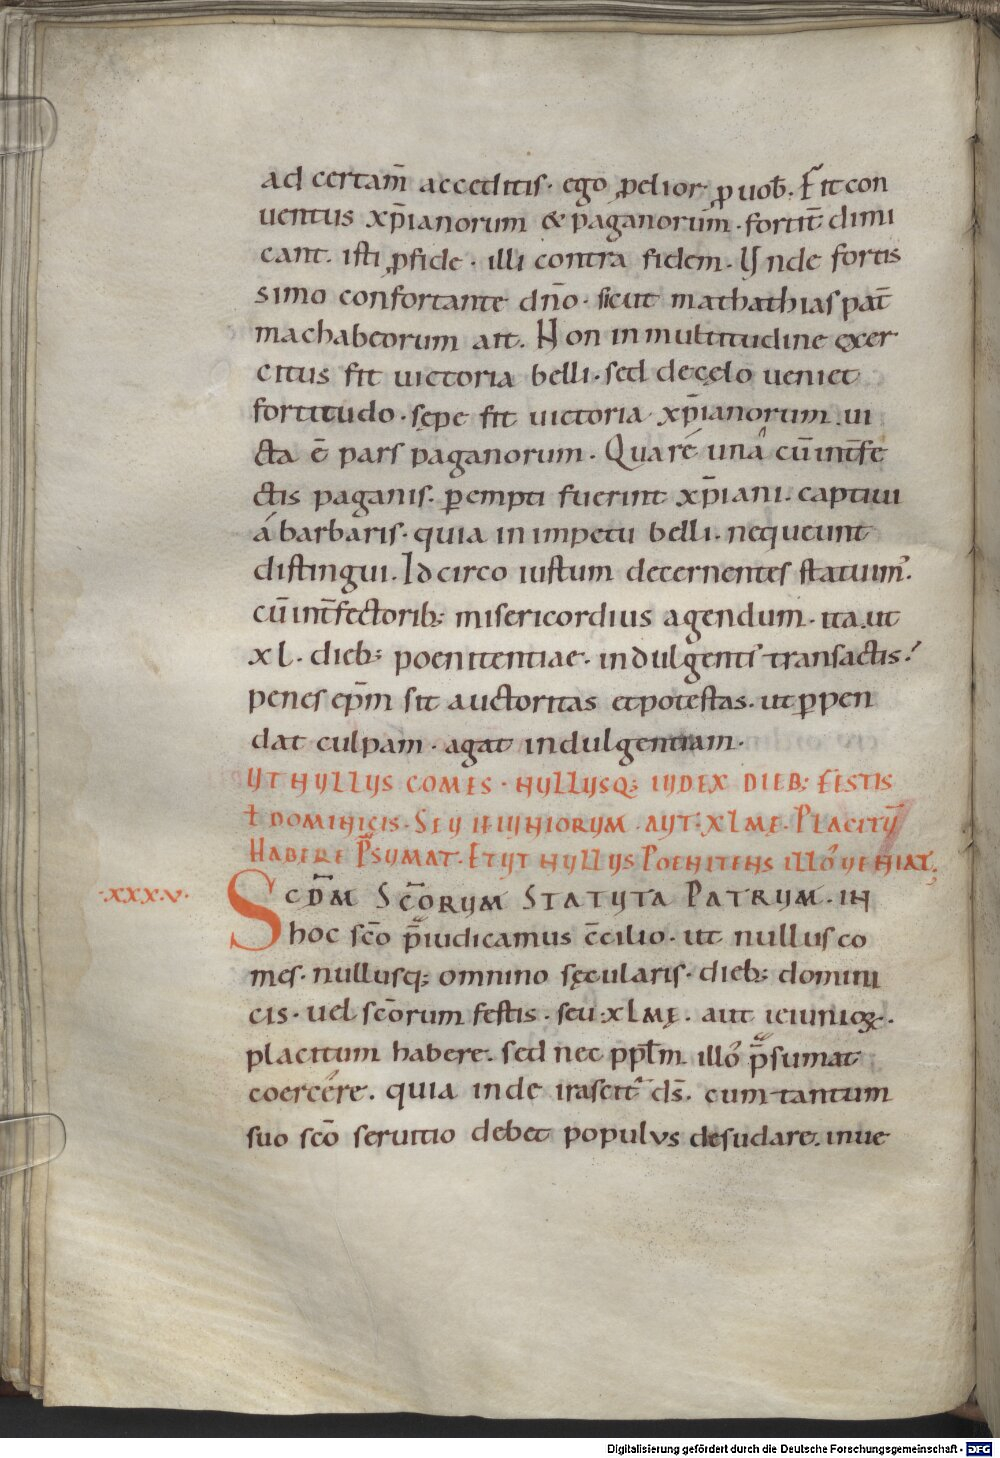 ad certam̄ acceditis· ego ꝓelior ꝓ uob̄. Fit con
uentus xp̄ianorum & paganorum·fortit̄ dimi
cant. isti ꝓ fide· illi contra fidem. Unde fortis
simo confortante dn̄o· sicut mathathias pat̄
machabeorum ait. Non in multitudine exer
citus fit uictoria belli·sed de cęlo ueniet
fortitudo·sępe fit uictoria xp̄ianorum. ui
cta ē pars paganorum. Quare una cū int̄fe
ctis paganis. ꝑempti fuerint xp̄iani. captiui
á barbaris·quia in impetu belli. nequeunt
distingui. Idcirco iustum decernentes statuim᾿.
cū int̄fectorib; misericordius agendum·ita.ut
xl·dieb; poenitentiae·indulgenti᾿ transactis·
penes ep̄m sit auctoritas et potestas. ut ꝑpen
dat culpam·agat indulgentiam·
UT NULLUS COMES·NULLUSQ; IUDEX DIEB; FESTIS
ł DOMINICIS·SEU IEIUNIORUM·AUT·XLMĘ·PLACITŪ
HABERE P̄SUMAT·ET UT NULLUS POENITENS ILLO᾿ UENIAT;
·XXX·V·
SCD̄M SC̄ORUM STATUTA PATRUM·IN
hoc sc̄o p̄iudicamus c̄cilio·ut nullus co
mes·nullusq; omnino sęcularis·dieb; domini
cis·uel sc̄orum festis·seu·xlmę·aut ieiunioꝝ·
placitum habere·sed nec ppl̄m illo᾿ p̄sumat
coercére·quia inde irascit᾿ ds̄. cum tantum
suo sc̄o seruitio debet populus desudare·inue
Digitalisierung gefördert durch die Deutsche Forschungsgemeinschaft - DFG